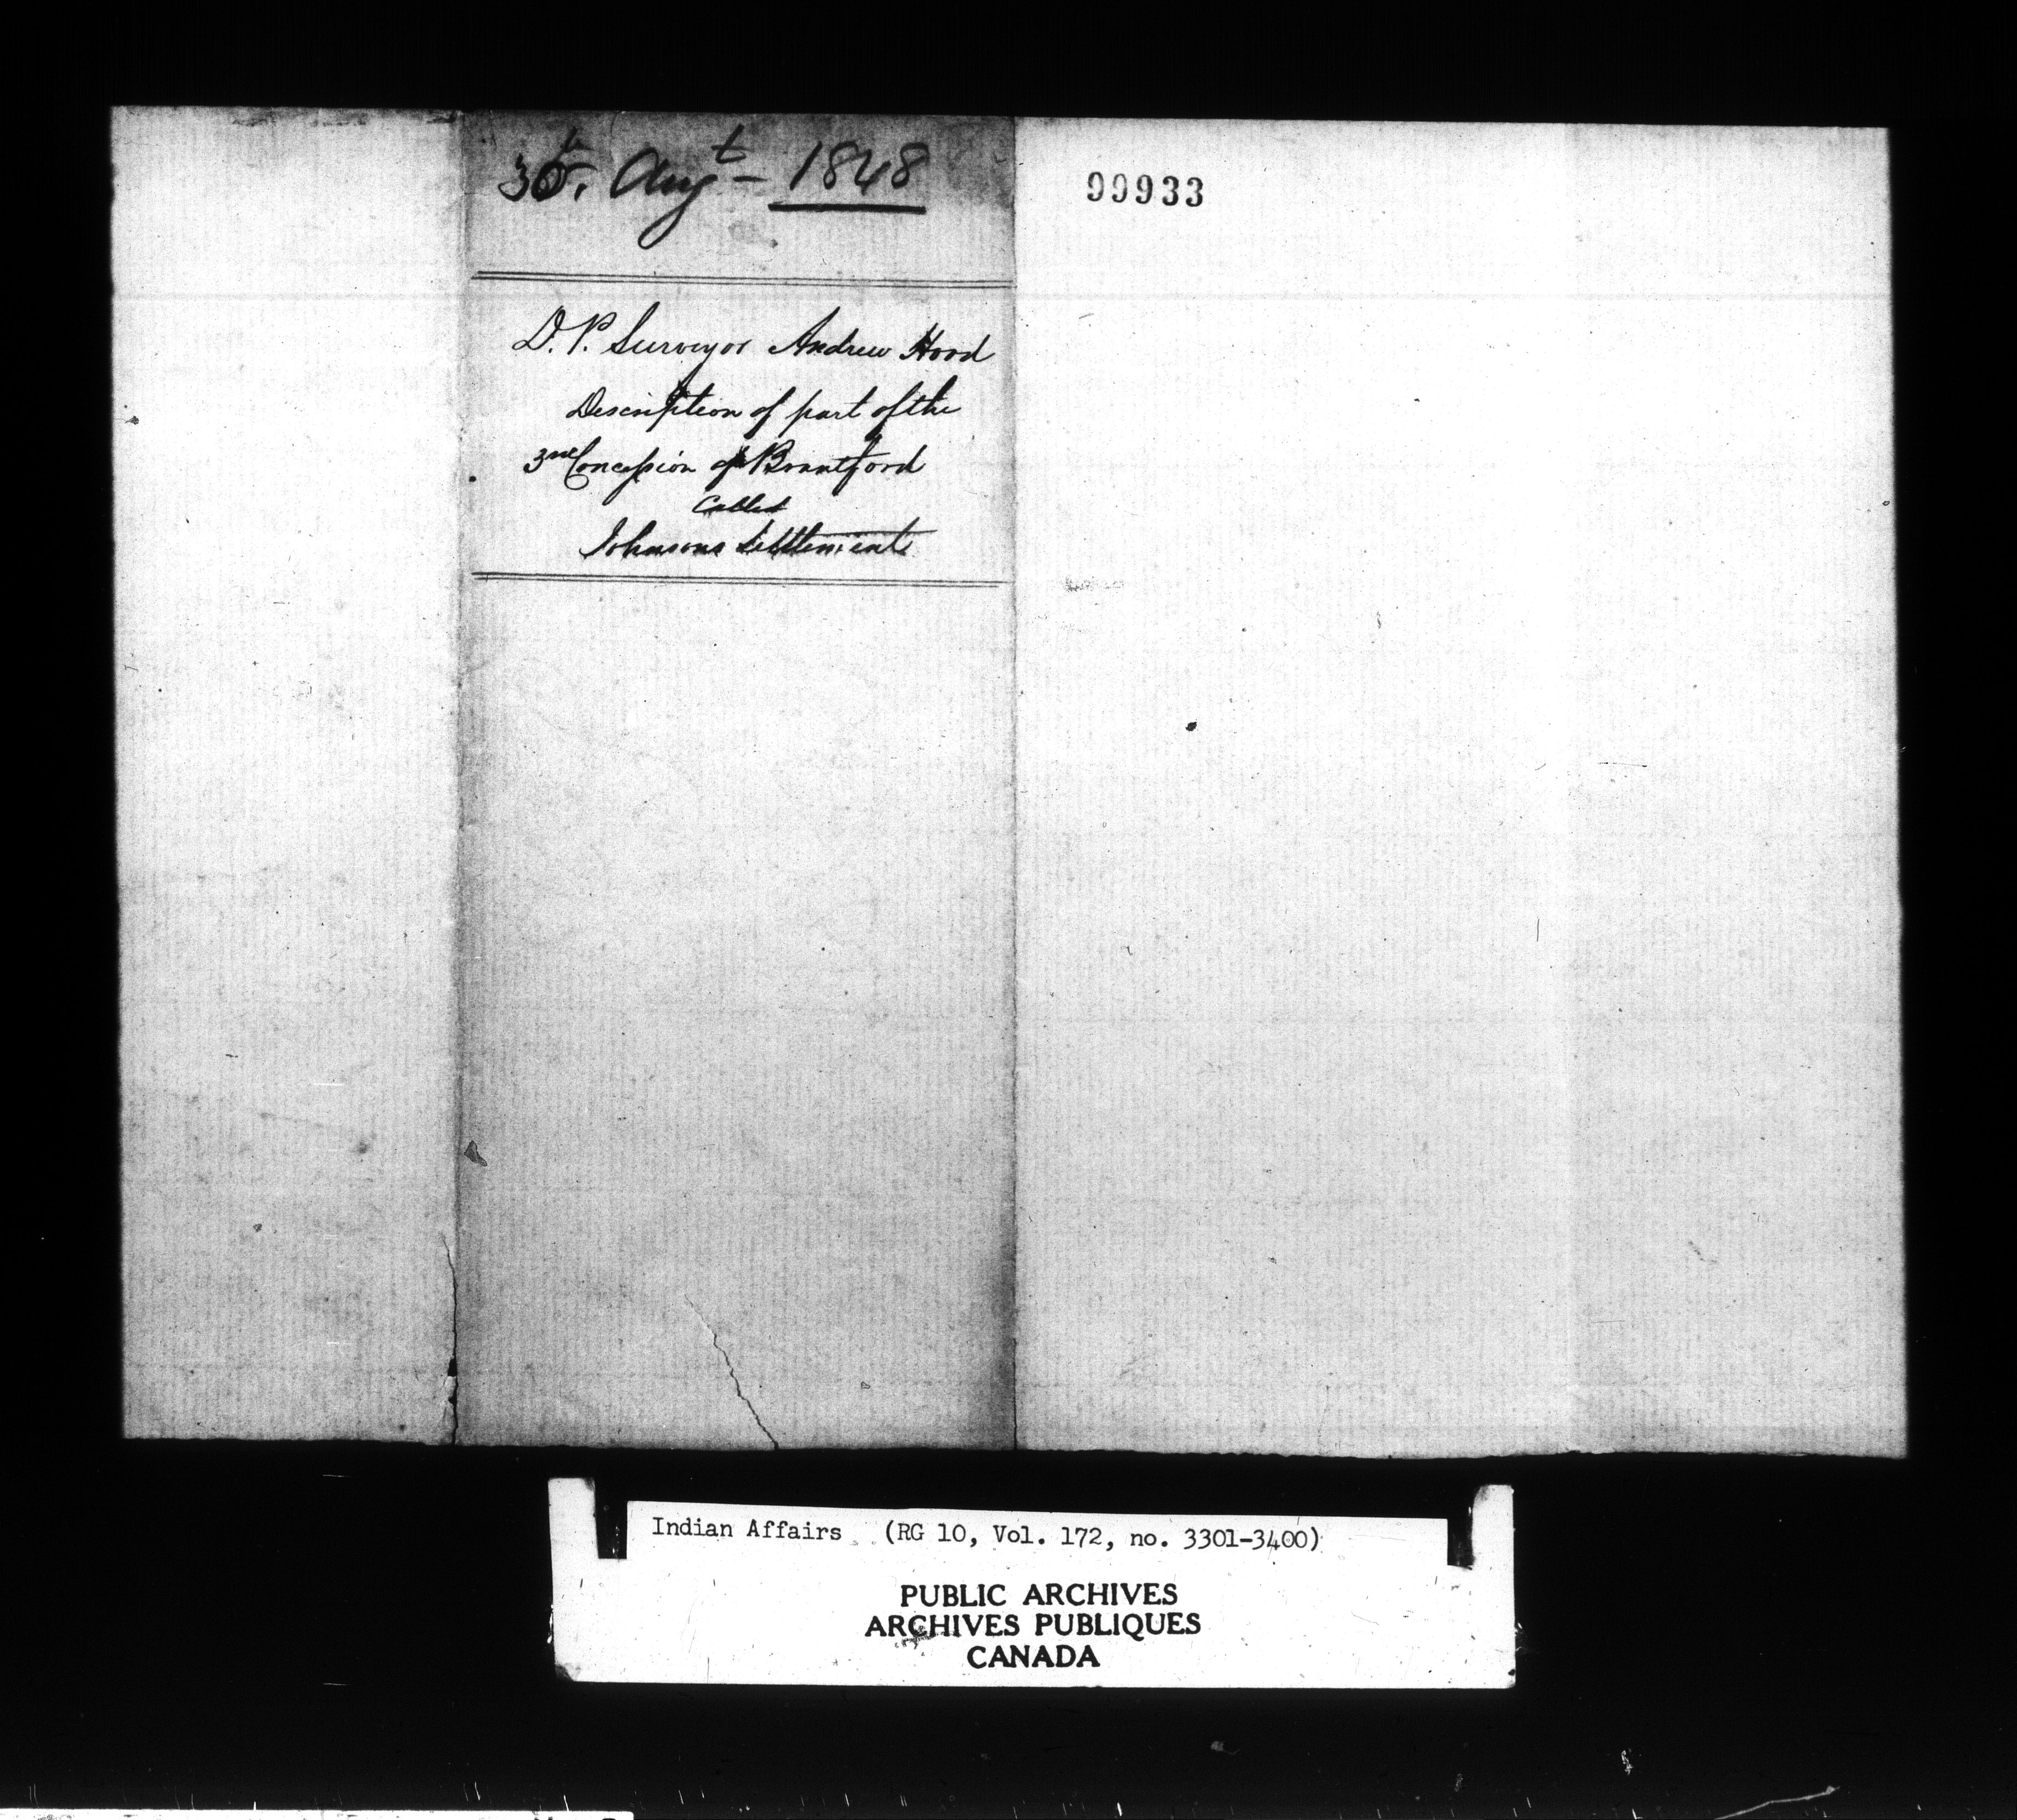 30th. Augt - 1848
99933
D. P. Surveyor Andrew Hood
Description of part of the
3rd Concession of Brantford
Called
Johnsons Settlement
Indian Affairs (RG 10, Vol. 172, no. 3301-3400)
PUBLIC ARCHIVES
ARCHIVES PUBLIQUES
CANADA